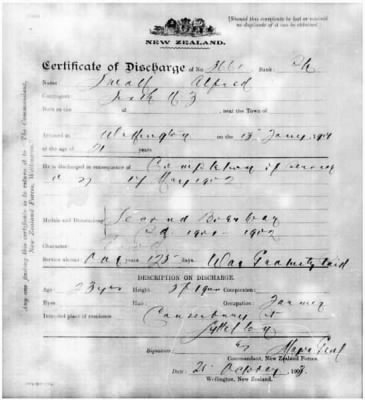 [Should this certificate be lost or mislaid
no duplicate of it can be obtained.
NEW ZEALAND.
Certificate of Discharge of No. Rank:
Name Small Alfred
Contingent
Born in the of , near the Town of
Attested at Wellington on the
at the age of 21 years
He is discharged in consequence of Completion of service
17 May 1902
Medals and Decorations Second Boer War
1901 - 1902
Character
Service abroad: One years 125 days. War Gratuity paid
DESCRIPTION ON DISCHARGE.
Age: 23 yrs Height: Complexion:
Eyes Hair Occupation: Farmer
Intended place of residence Canterbury
Lyttelton
Signature: Major Genl
Commandant, New Zealand Forces.
Date: October
Wellington, New Zealand.
Any one finding this certificate is to return it to The Commandant,
New Zealand Forces, Wellington.